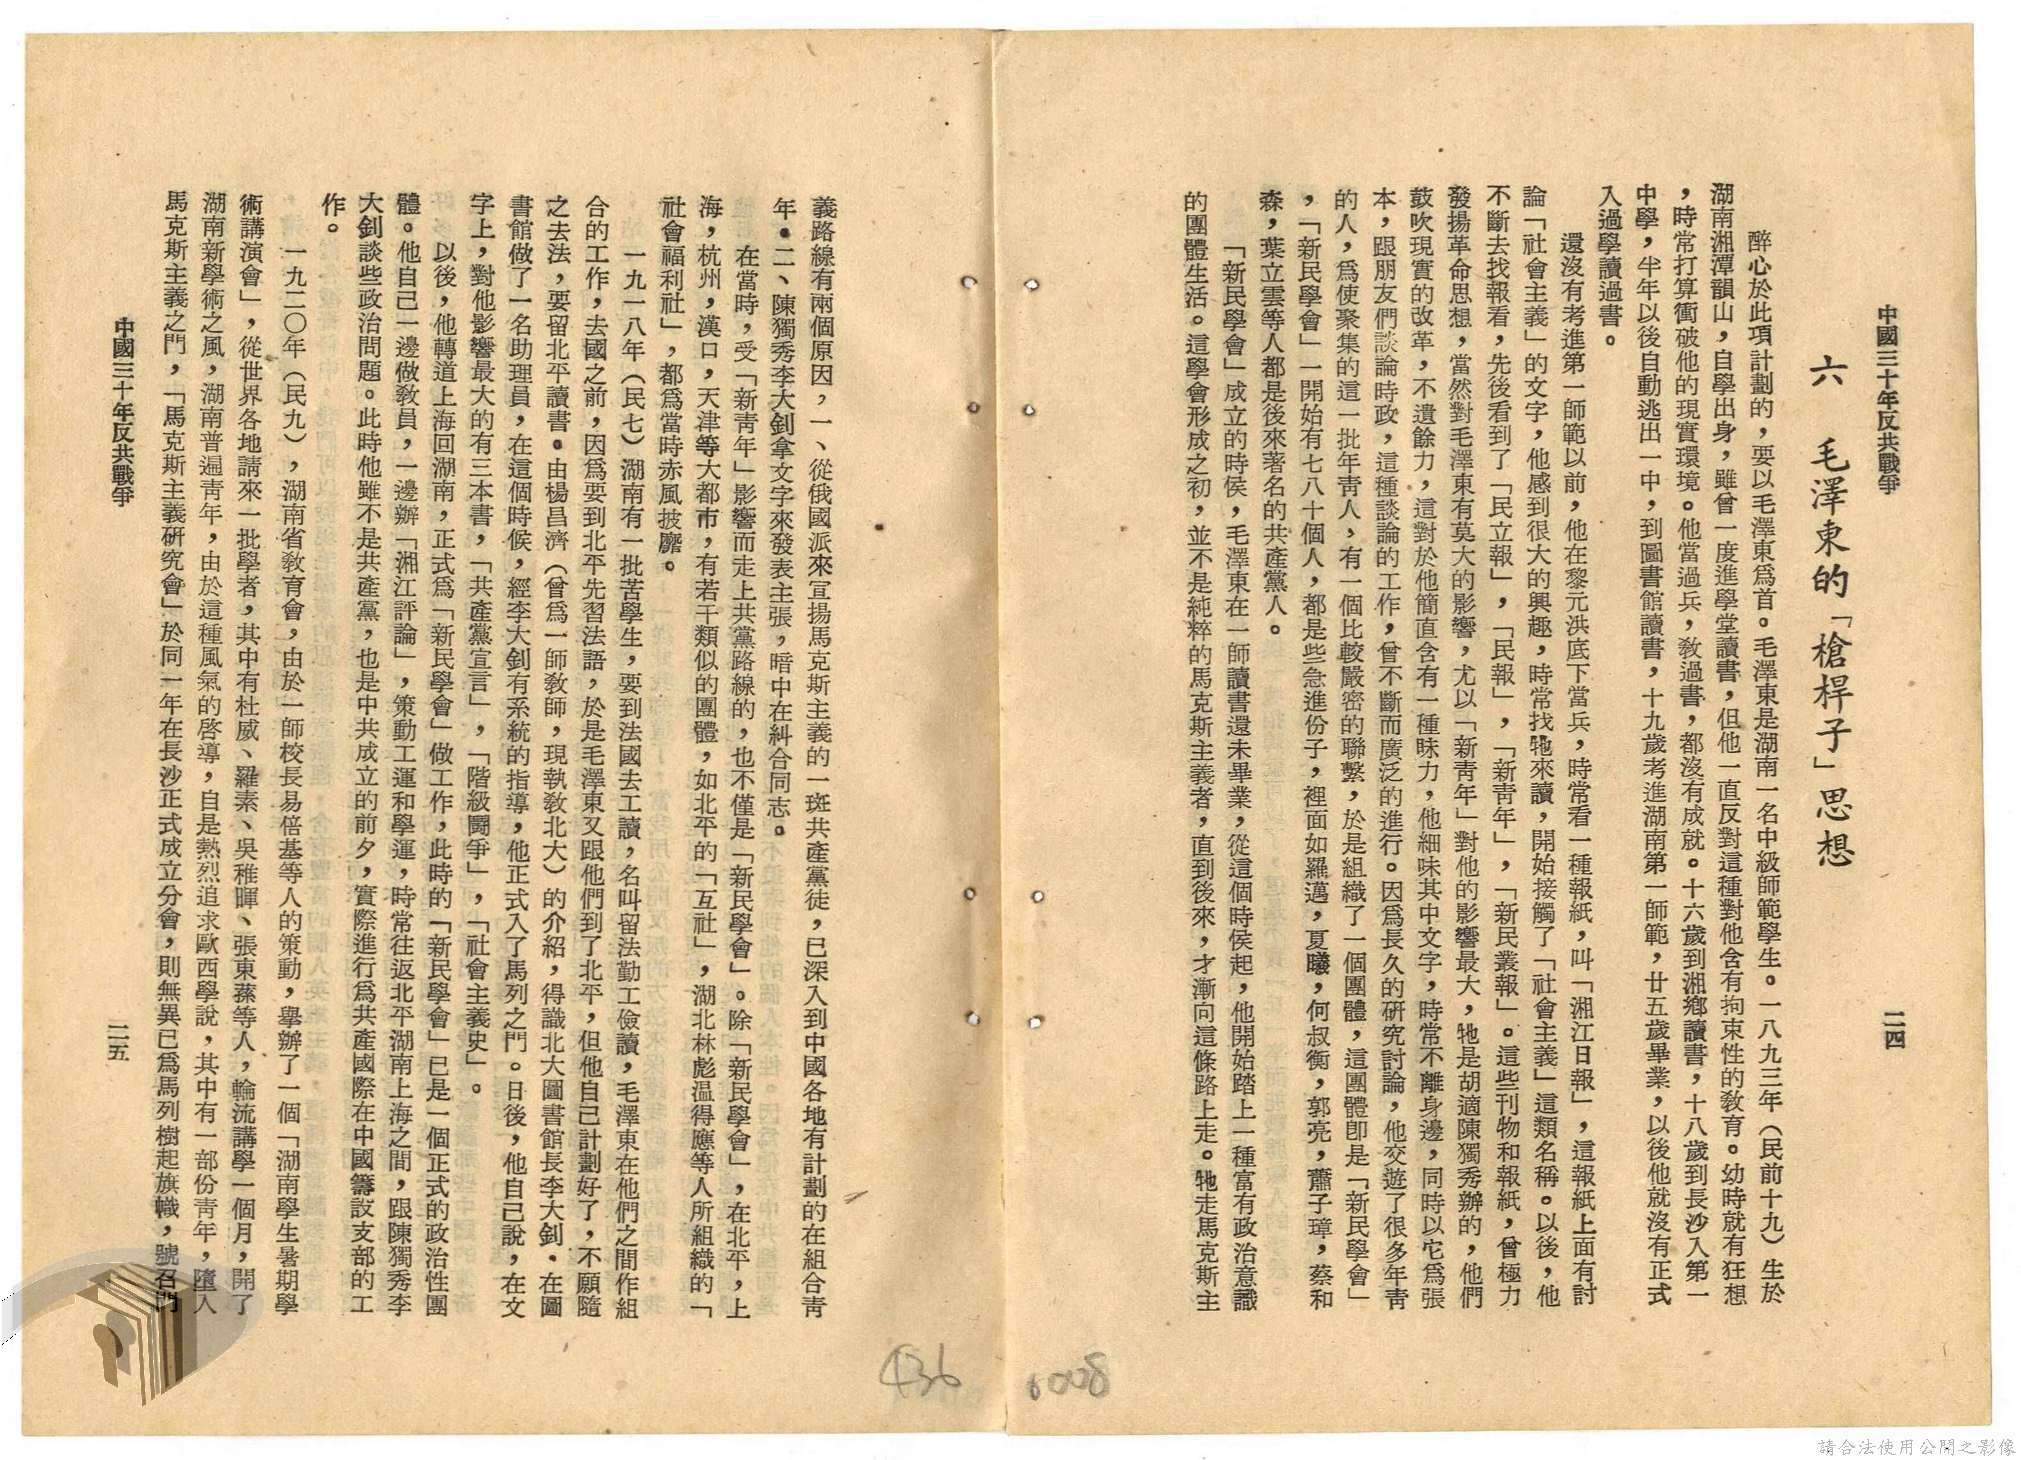 中國三十年反共戰爭
二四
六　毛澤東的「槍桿子」思想
醉心於此項計劃的，要以毛澤東爲首。毛澤東是湖南一名中級師範學生。一八九三年（民前十九）生於
湖南湘潭韻山，自學出身，雖曾一度進學堂讀書，但他一直反對這種對他含有拘束性的敎育。幼時就有狂想
，時常打算衝破他的現實環境。他當過兵，敎過書，都沒有成就。十六歲到湘鄉讀書，十八歲到長沙入第一
中學，半年以後自動逃出一中，到圖書館讀書，十九歲考進湖南第一師範，廿五歲畢業，以後他就沒有正式
入過學讀過書。
還沒有考進第一師範以前，他在黎元洪底下當兵，時常看一種報紙，叫「湘江日報」，這報紙上面有討
論「社會主義」的文字，他感到很大的興趣，時常找牠來讀，開始接觸了「社會主義」這類名稱。以後，他
不斷去找報看，先後看到了「民立報」，「民報」，「新靑年」，「新民叢報」。這些刊物和報紙，曾極力
發揚革命思想，當然對毛澤東有莫大的影響，尤以「新靑年」對他的影響最大，牠是胡適陳獨秀辦的，他們
鼓吹現實的改革，不遺餘力，這對於他簡直含有一種昧力，他細味其中文字，時常不離身邊，同時以它爲張
本，跟朋友們談論時政，這種談論的工作，曾不斷而廣泛的進行。因爲長久的研究討論，他交遊了很多年靑
的人，爲使聚集的這一批年靑人，有一個比較嚴密的聯繫，於是組織了一個團體，這團體卽是「新民學會」
，「新民學會」一開始有七八十個人，都是些急進份子，裡面如羅邁，夏曦，何叔衡，郭亮，蕭子璋，蔡和
森，葉立雲等人都是後來著名的共產黨人。
「新民學會」成立的時侯，毛澤東在一師讀書還未畢業，從這個時侯起，他開始踏上一種富有政治意識
的團體生活。這學會形成之初，並不是純粹的馬克斯主義者，直到後來，才漸向這條路上走。牠走馬克斯主
義路線有兩個原因，一、從俄國派來宣揚馬克斯主義的一班共產黨徒，已深入到中國各地有計劃的在組合靑
年。二、陳獨秀李大釗拿文字來發表主張，暗中在糾合同志。
在當時，受「新靑年」影響而走上共黨路線的，也不僅是「新民學會」。除「新民學會」，在北平，上
海，杭州，漢口，天津等大都市，有若干類似的團體，如北平的「互社」，湖北林彪溫得應等人所組織的「
社會福利社」，都爲當時赤風披靡。
一九一八年（民七）湖南有一批苦學生，要到法國去工讀，名叫留法勤工儉讀，毛澤東在他們之間作組
合的工作，去國之前，因爲要到北平先習法語，於是毛澤東又跟他們到了北平，但他自己計劃好了，不願隨
之去法，要留北平讀書。由楊昌濟（曾爲一師敎師，現執敎北大）的介紹，得識北大圖書館長李大釗。在圖
書館做了一名助理員，在這個時候，經李大釗有系統的指導，他正式入了馬列之門。日後，他自己說，在文
字上，對他影響最大的有三本書，「共產黨宣言」，「階級鬪爭」，「社會主義史」。
以後，他轉道上海回湖南，正式爲「新民學會」做工作，此時的「新民學會」已是一個正式的政治性團
體。他自己一邊做敎員，一邊辦「湘江評論」，策動工運和學運，時常往返北平湖南上海之間，跟陳獨秀李
大釗談些政治問題。此時他雖不是共產黨，也是中共成立的前夕，實際進行爲共產國際在中國籌設支部的工
作。
一九二〇年（民九），湖南省敎育會，由於一師校長易倍基等人的策動，擧辦了一個「湖南學生暑期學
術講演會」，從世界各地請來一批學者，其中有杜威、羅素、吳稚暉、張東蓀等人，輪流講學一個月，開了
湖南新學術之風，湖南普遍靑年，由於這種風氣的啓導，自是熱烈追求歐西學說，其中有一部份靑年，墮入
馬克斯主義之門，「馬克斯主義硏究會」於同一年在長沙正式成立分會，則無異已爲馬列樹起旗幟，號召門
中國三十年反共戰爭
二五
436
6008
請合法使用公開之影像